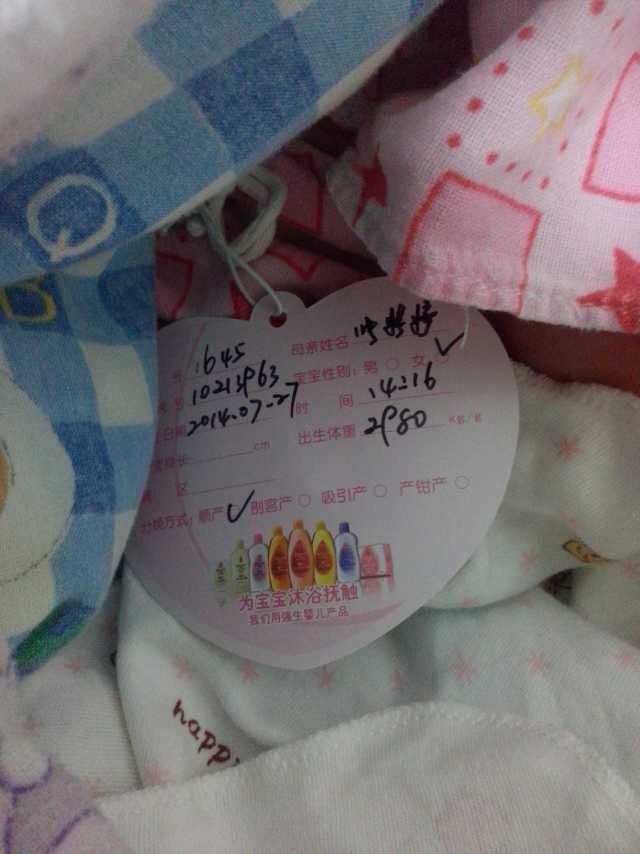 Q
B
号 1645 母亲姓名
号 10213963 宝宝性别：男 女 ✓
日期 2014.07-27 时 间 14:16
身长 cm 出生体重 2980 kg/g
区
分娩方式：顺产 ✓ 剖宫产 吸引产 产钳产
为宝宝沐浴抚触
我们用强生婴儿产品
happy